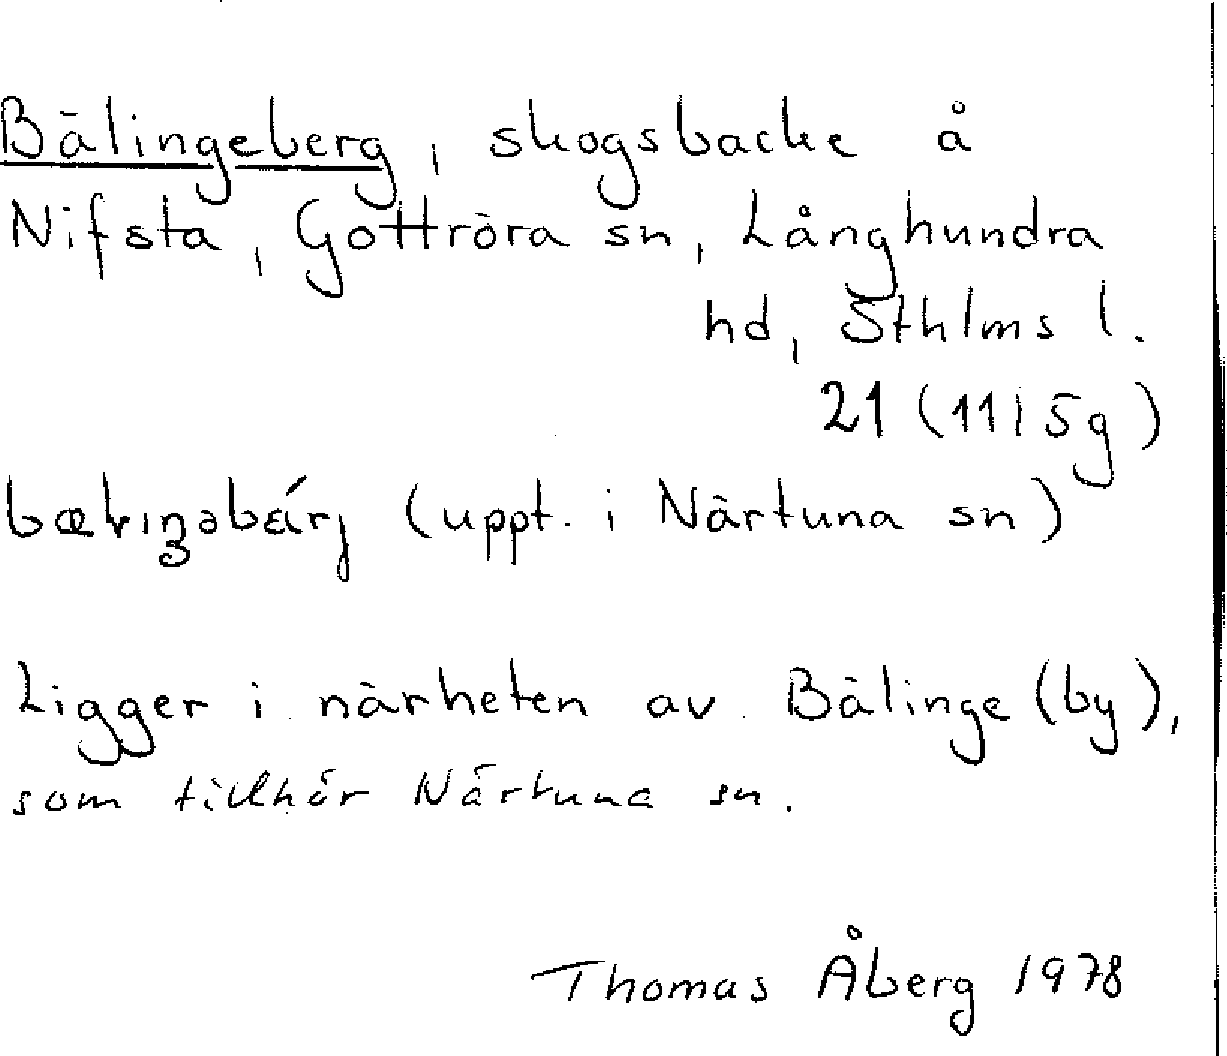 Bälingeberg, skogsbacke å
Nifsta, Gottröra sn, Långhundra
hd, Sthlms l.
21 (11i 5g)
(uppt. i Närtuna sn)
Ligger i närheten av Bälinge (by),
som tillhör Närtuna sn.
Thomas Åberg 1978